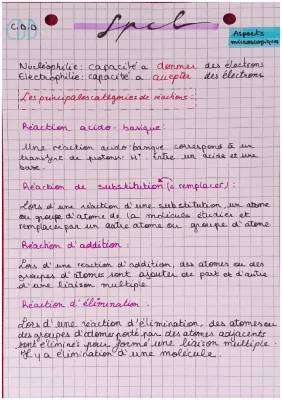 C.D.D
Spcl
Aspects
microscopiques
Nucléophilie : capacité à donner des électrons
Electrophilie : capacité à accepter des électrons
Les principales catégories de réactions :
Réaction acido-basique :
Une réaction acido-basique correspond à un
transfert de protons H⁺ entre un acide et une
base.
Réaction de substitution (= remplacer) :
Lors d'une réaction d'une substitution, un atome
ou groupe d'atome de la molécule étudier et
remplacer par un autre atome ou groupe d'atome
Réaction d'addition :
Lors d'une reaction d'addition, des atomes ou des
groupes d'atomes sont ajouter de part et d'autre
d'une liaison multiple.
Réaction d'élimination :
Lors d'une réaction d'élimination, des atomes ou
des groupes d'atomes porté par des atomes adjacents
sont éliminés pour formé une liaison multiple.
Il y a élimination d'une molécule.